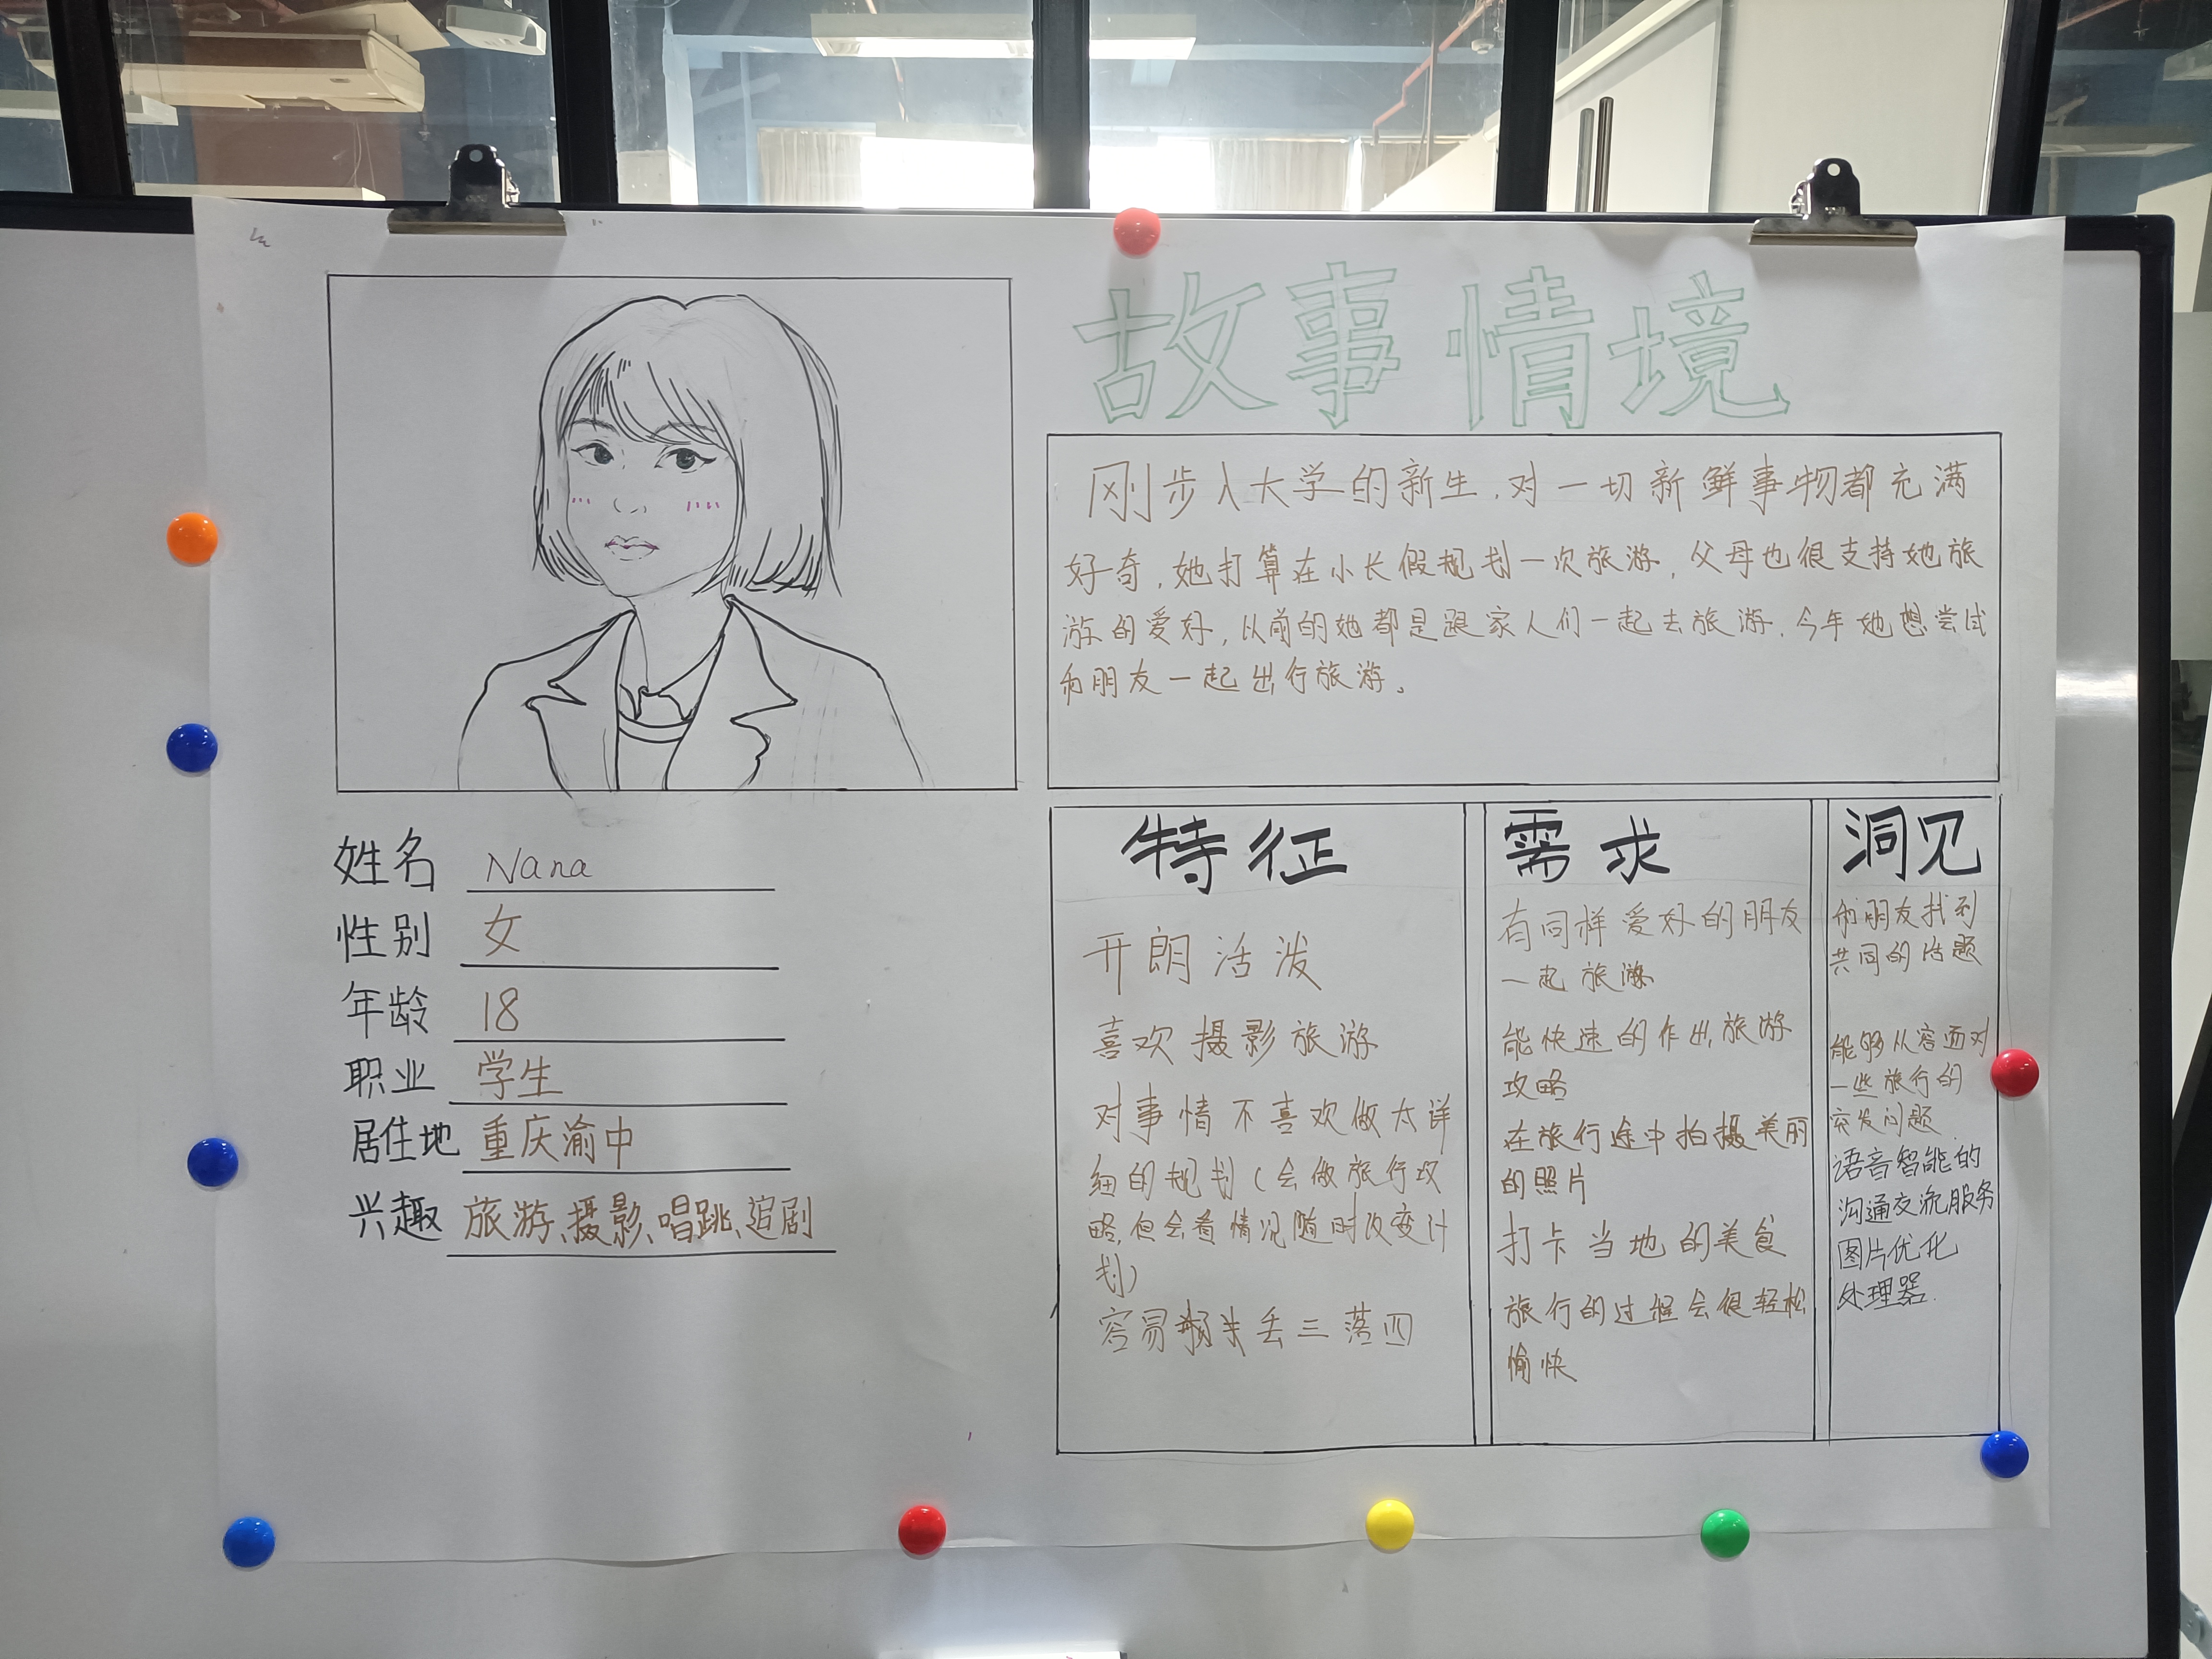 故事情境
刚步入大学的新生,对一切新鲜事物都充满
好奇,她打算在小长假规划一次旅游,父母也很支持她旅
游的爱好,以前的她都是跟家人们一起去旅游,今年她想尝试
和朋友一起出行旅游。
姓名 Nana
性别 女
年龄 18
职业 学生
居住地 重庆渝中
兴趣 旅游、摄影、唱跳、追剧
特征
开朗活泼
喜欢摄影旅游
对事情不喜欢做太详
细的规划(会做旅行攻
略,但会看情况随时改变计
划)
容易丢三落四
需求
有同样爱好的朋友
一起旅游
能快速的作出旅游
攻略
在旅行途中拍摄美丽
的照片
打卡当地的美食
旅行的过程会很轻松
愉快
洞见
和朋友找到
共同的话题
能够从容面对
一些旅行的
突发问题
语音智能的
沟通交流服务
图片优化
处理器.